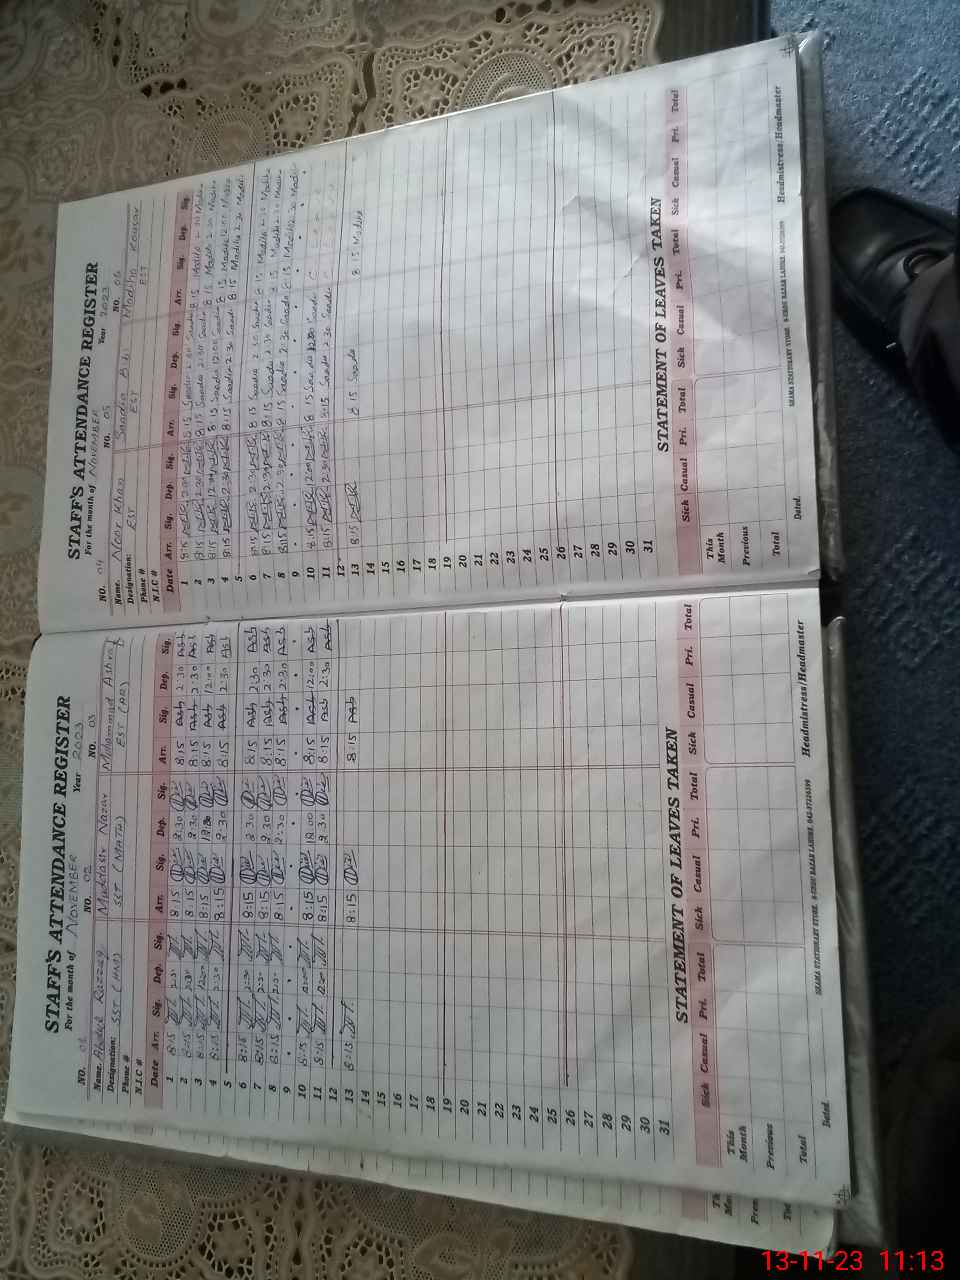 STAFF'S ATTENDANCE REGISTER
For the month of NOVEMBER Year 2023
NO. 01 NO. 02 NO. 03
Name. Abdul Razzaq Mukhtar Nazar Muhammad Ashraf
Designation: SST (ARB) SST (MATH) EST (AR)
Phone #
N.I.C #
Date Arr. Sig. Dep. Sig. Arr. Sig. Dep. Sig. Arr. Sig. Dep. Sig.
1 8:15 2:30 8:15 2:30 8:15 Ash 2:30 Ash
2 8:15 2:30 8:15 2:30 8:15 Ash 2:30 Ash
3 8:15 12:00 8:15 12:00 8:15 Ash 12:00 Ash
4 8:15 2:30 8:15 2:30 8:15 Ash 2:30 Ash
5
6 8:15 2:30 8:15 2:30 8:15 Ash 2:30 Ash
7 8:15 2:30 8:15 2:30 8:15 Ash 2:30 Ash
8 8:15 2:30 8:15 2:30 8:15 Ash 2:30 Ash
9
10 8:15 12:00 8:15 12:00 8:15 Ash 12:00 Ash
11 8:15 8:15 2:30 8:15 Ash 2:30 Ash
12
13 8:15 8:15 8:15 Ash
14
15
16
17
18
19
20
21
22
23
24
25
26
27
28
29
30
31
STATEMENT OF LEAVES TAKEN
Sick Casual Pri. Total Sick Casual Pri. Total Sick Casual Pri. Total
This Month
Previous
Total
Dated. Headmistress/Headmaster
STAFF'S ATTENDANCE REGISTER
For the month of NOVEMBER Year 2023
NO. 04 NO. 05 NO. 06
Name. Noor Khan Saadia Bibi Madiha Kousar
Designation: EST EST EST
Phone #
N.I.C #
Date Arr. Sig. Dep. Sig. Arr. Sig. Dep. Sig. Arr. Sig. Dep. Sig.
1 8:15 2:30 8:15 Saadia 2:30 Saadia 8:15 Madiha 2:30 Madiha
2 8:15 2:30 8:15 Saadia 2:30 Saadia 8:15 Madiha 2:30 Madiha
3 8:15 12:00 8:15 Saadia 12:00 Saadia 8:15 Madiha 12:00 Madiha
4 8:15 2:30 8:15 Saadia 2:30 Saadia 8:15 Madiha 2:30 Madiha
5
6 8:15 2:30 8:15 Saadia 2:30 Saadia 8:15 Madiha 2:30 Madiha
7 8:15 2:30 8:15 Saadia 2:30 Saadia 8:15 Madiha 2:30 Madiha
8 8:15 2:30 8:15 Saadia 2:30 Saadia 8:15 Madiha 2:30 Madiha
9
10 8:15 12:00 8:15 Saadia 12:00 Saadia
11 8:15 2:30 8:15 Saadia 2:30 Saadia
12
13 8:15 8:15 Saadia 8:15 Madiha
14
15
16
17
18
19
20
21
22
23
24
25
26
27
28
29
30
31
STATEMENT OF LEAVES TAKEN
Sick Casual Pri. Total Sick Casual Pri. Total Sick Casual Pri. Total
This Month
Previous
Total
Dated. Headmistress/Headmaster
13-11-23 11:13